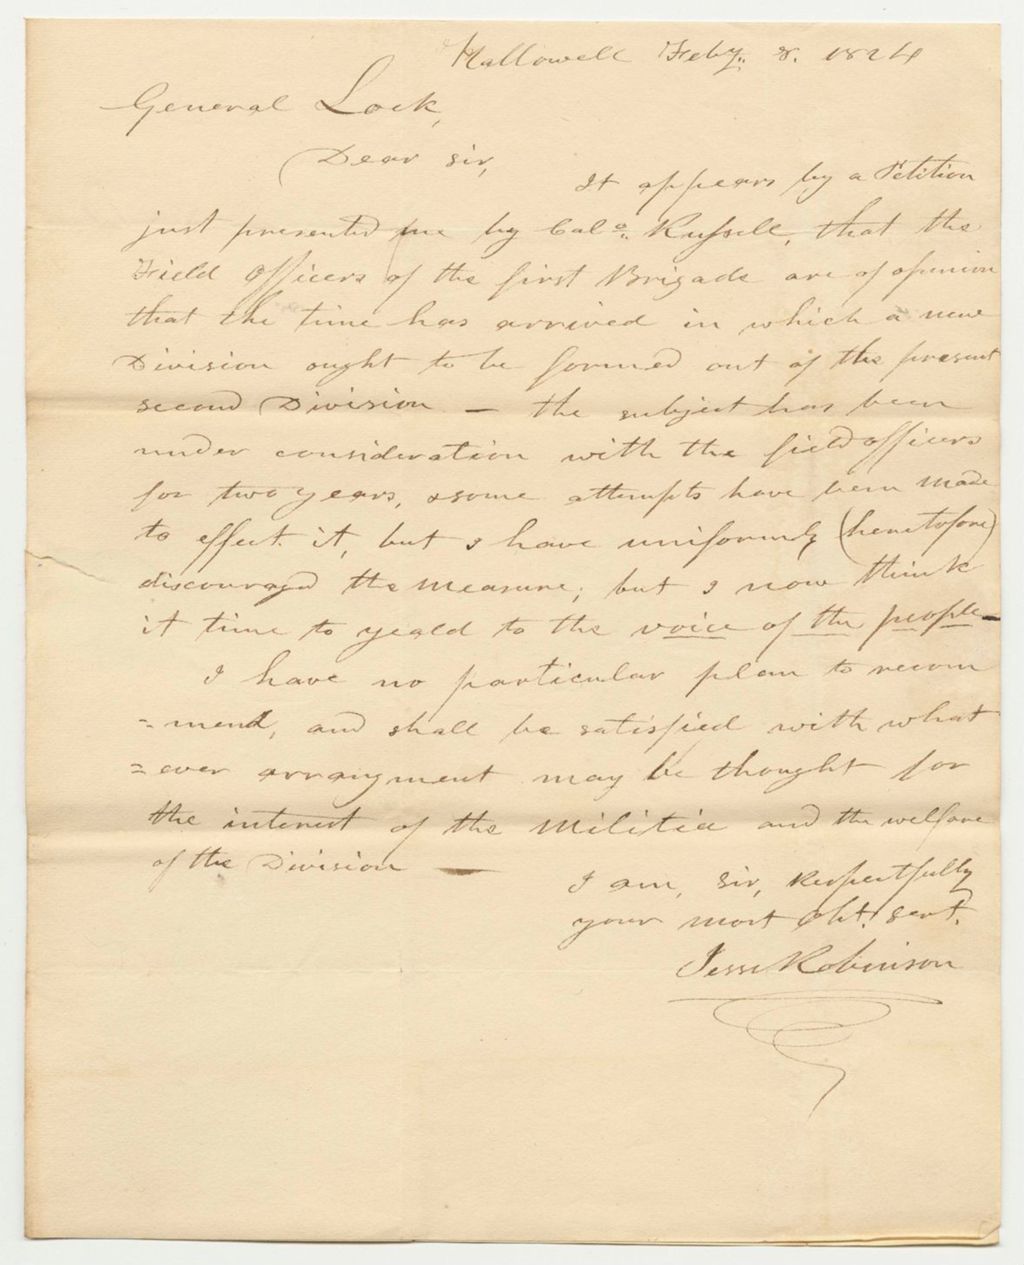 Hallowell Feby. 8. 1824
General Lock,
Dear Sir,
It appears by a Petition
just presented me by Colo. Russell, that the
Field Officers of the first Brigade are of opinion
that the time has arrived in which a new
Division ought to be formed out of the present
second Division — the subject has been
under consideration with the field officers
for two years, & some attempts have been made
to effect it, but I have uniformly (heretofore)
discouraged the measure; but I now think
it time to yeald to the voice of the people—
I have no particular plan to recom
=mend, and shall be satisfied with what
=ever arrangment may be thought for
the interest of the Militia and the welfare
of the Division —
I am, Sir, Respectfully
your most Obt. Servt.
Jesse Robinson